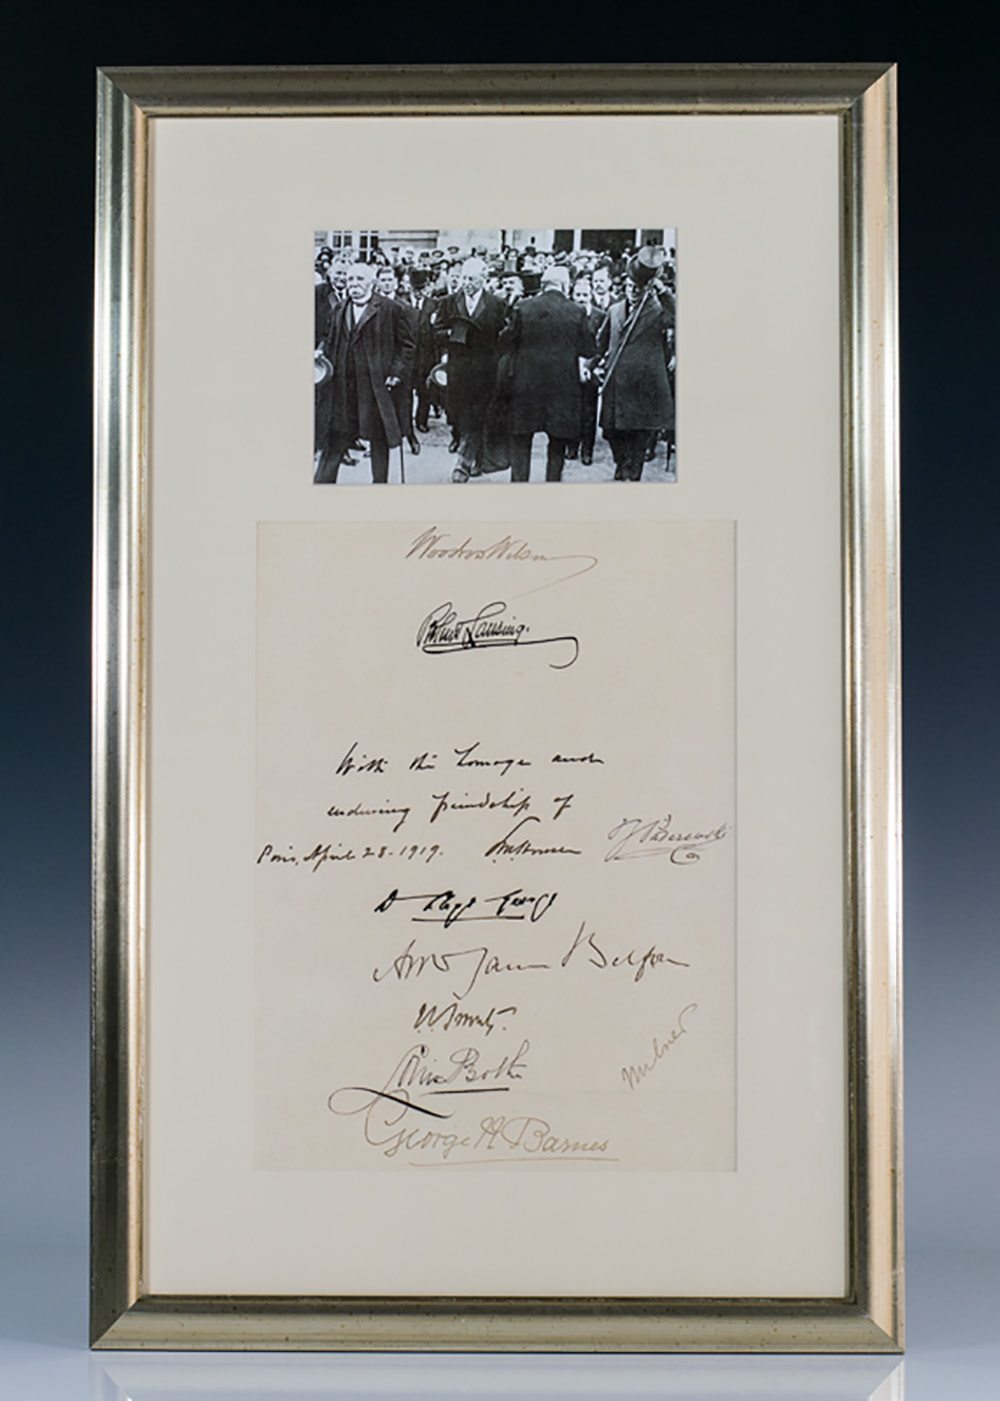 Woodrow Wilson
Robert Lansing.
With the homage and
enduring friendship of
Paris, April 28-1919.
I J Paderewski
D Lloyd George
Arthur James Balfour
Louis Botha
Milner
George N Barnes